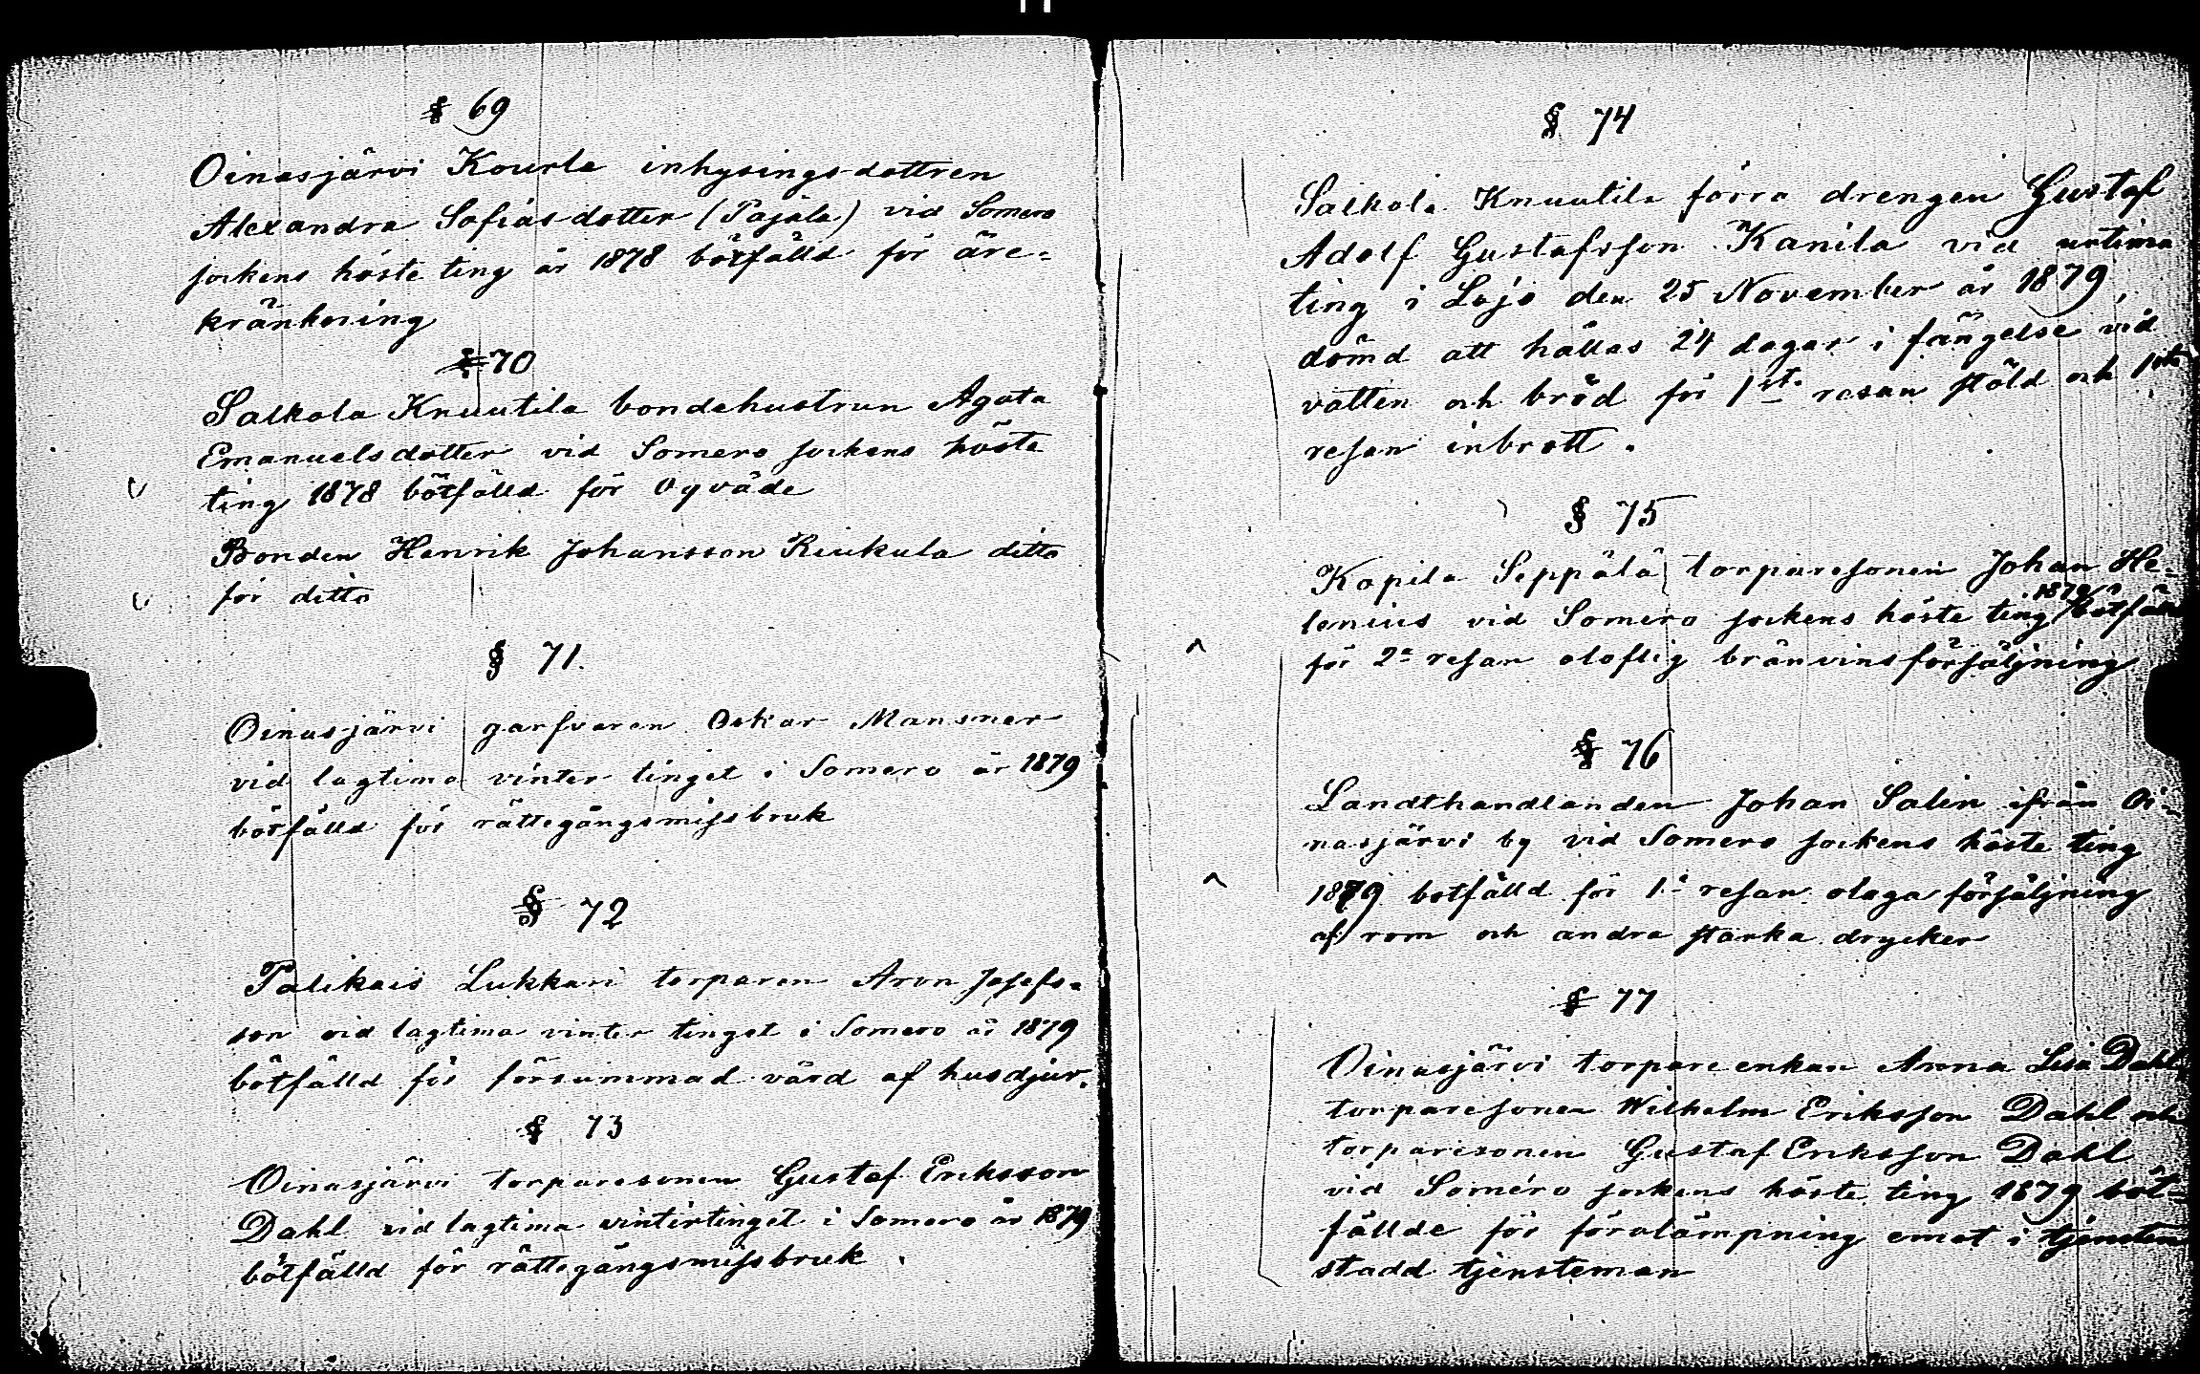 § 69
Oinasjärvi Kourla inhysingsdottren
Alexandra Sofiasdotter (Pajala) vid Somero
sockens höste ting år 1878 bötfälld för äre-
kränkning
§ 70
Salkola Knuutila bondehustrun Agata
Emanuelsdotter vid Somero sockens höste
ting 1878 bötfälld för Oqväde
Bonden Henrik Johansson Kiukula ditto
för ditto
§ 71.
Oinasjärvi garfvaren Oskar Mansner
vid lagtima vinter tinget i Somero år 1879
bötfälld för rättegångsmissbruk
§ 72
Palikais Lukkari torparen Aron Josefs-
son vid lagtima vinter tinget i Somero år 1879
bötfälld för försummad vård af husdjur.
§ 73
Oinasjärvi torparesonen Gustaf Eriksson
Dahl vid lagtima vintertinget i Somero år 1879
bötfälld för rättegångsmissbruk.
§ 74
Salkola Knuutila förra drengen Gustaf
Adolf Gustafsson Kanila vid urtima
ting i Lojo den 25 November år 1879,
dömd att hållas 24 dagar i fängelse vid
vatten och bröd för 1sta resan stöld och 1sta
resan inbrott.
§ 75
Kopila Seppälä torparesonen Johan He-
lenius vid Somero sockens höste ting 1879 bötfälld
för 2a resan oloflig bränvinsförsäljning
§ 76
Landthandlanden Johan Salen ifrån Oi-
nasjärvi by vid Somero sockens höste ting
1879 botfälld för 1a resan olaga försäljning
af rom och andra starka drycker
§ 77
Oinasjärvi torpare enkan Anna Lisa Dahl,
torparesonen Wilhelm Eriksson Dahl och
torparesonen Gustaf Eriksson Dahl
vid Somero sockens höste ting 1879 böt-
fällde för förolämpning emot i tjensten
stadd tjensteman